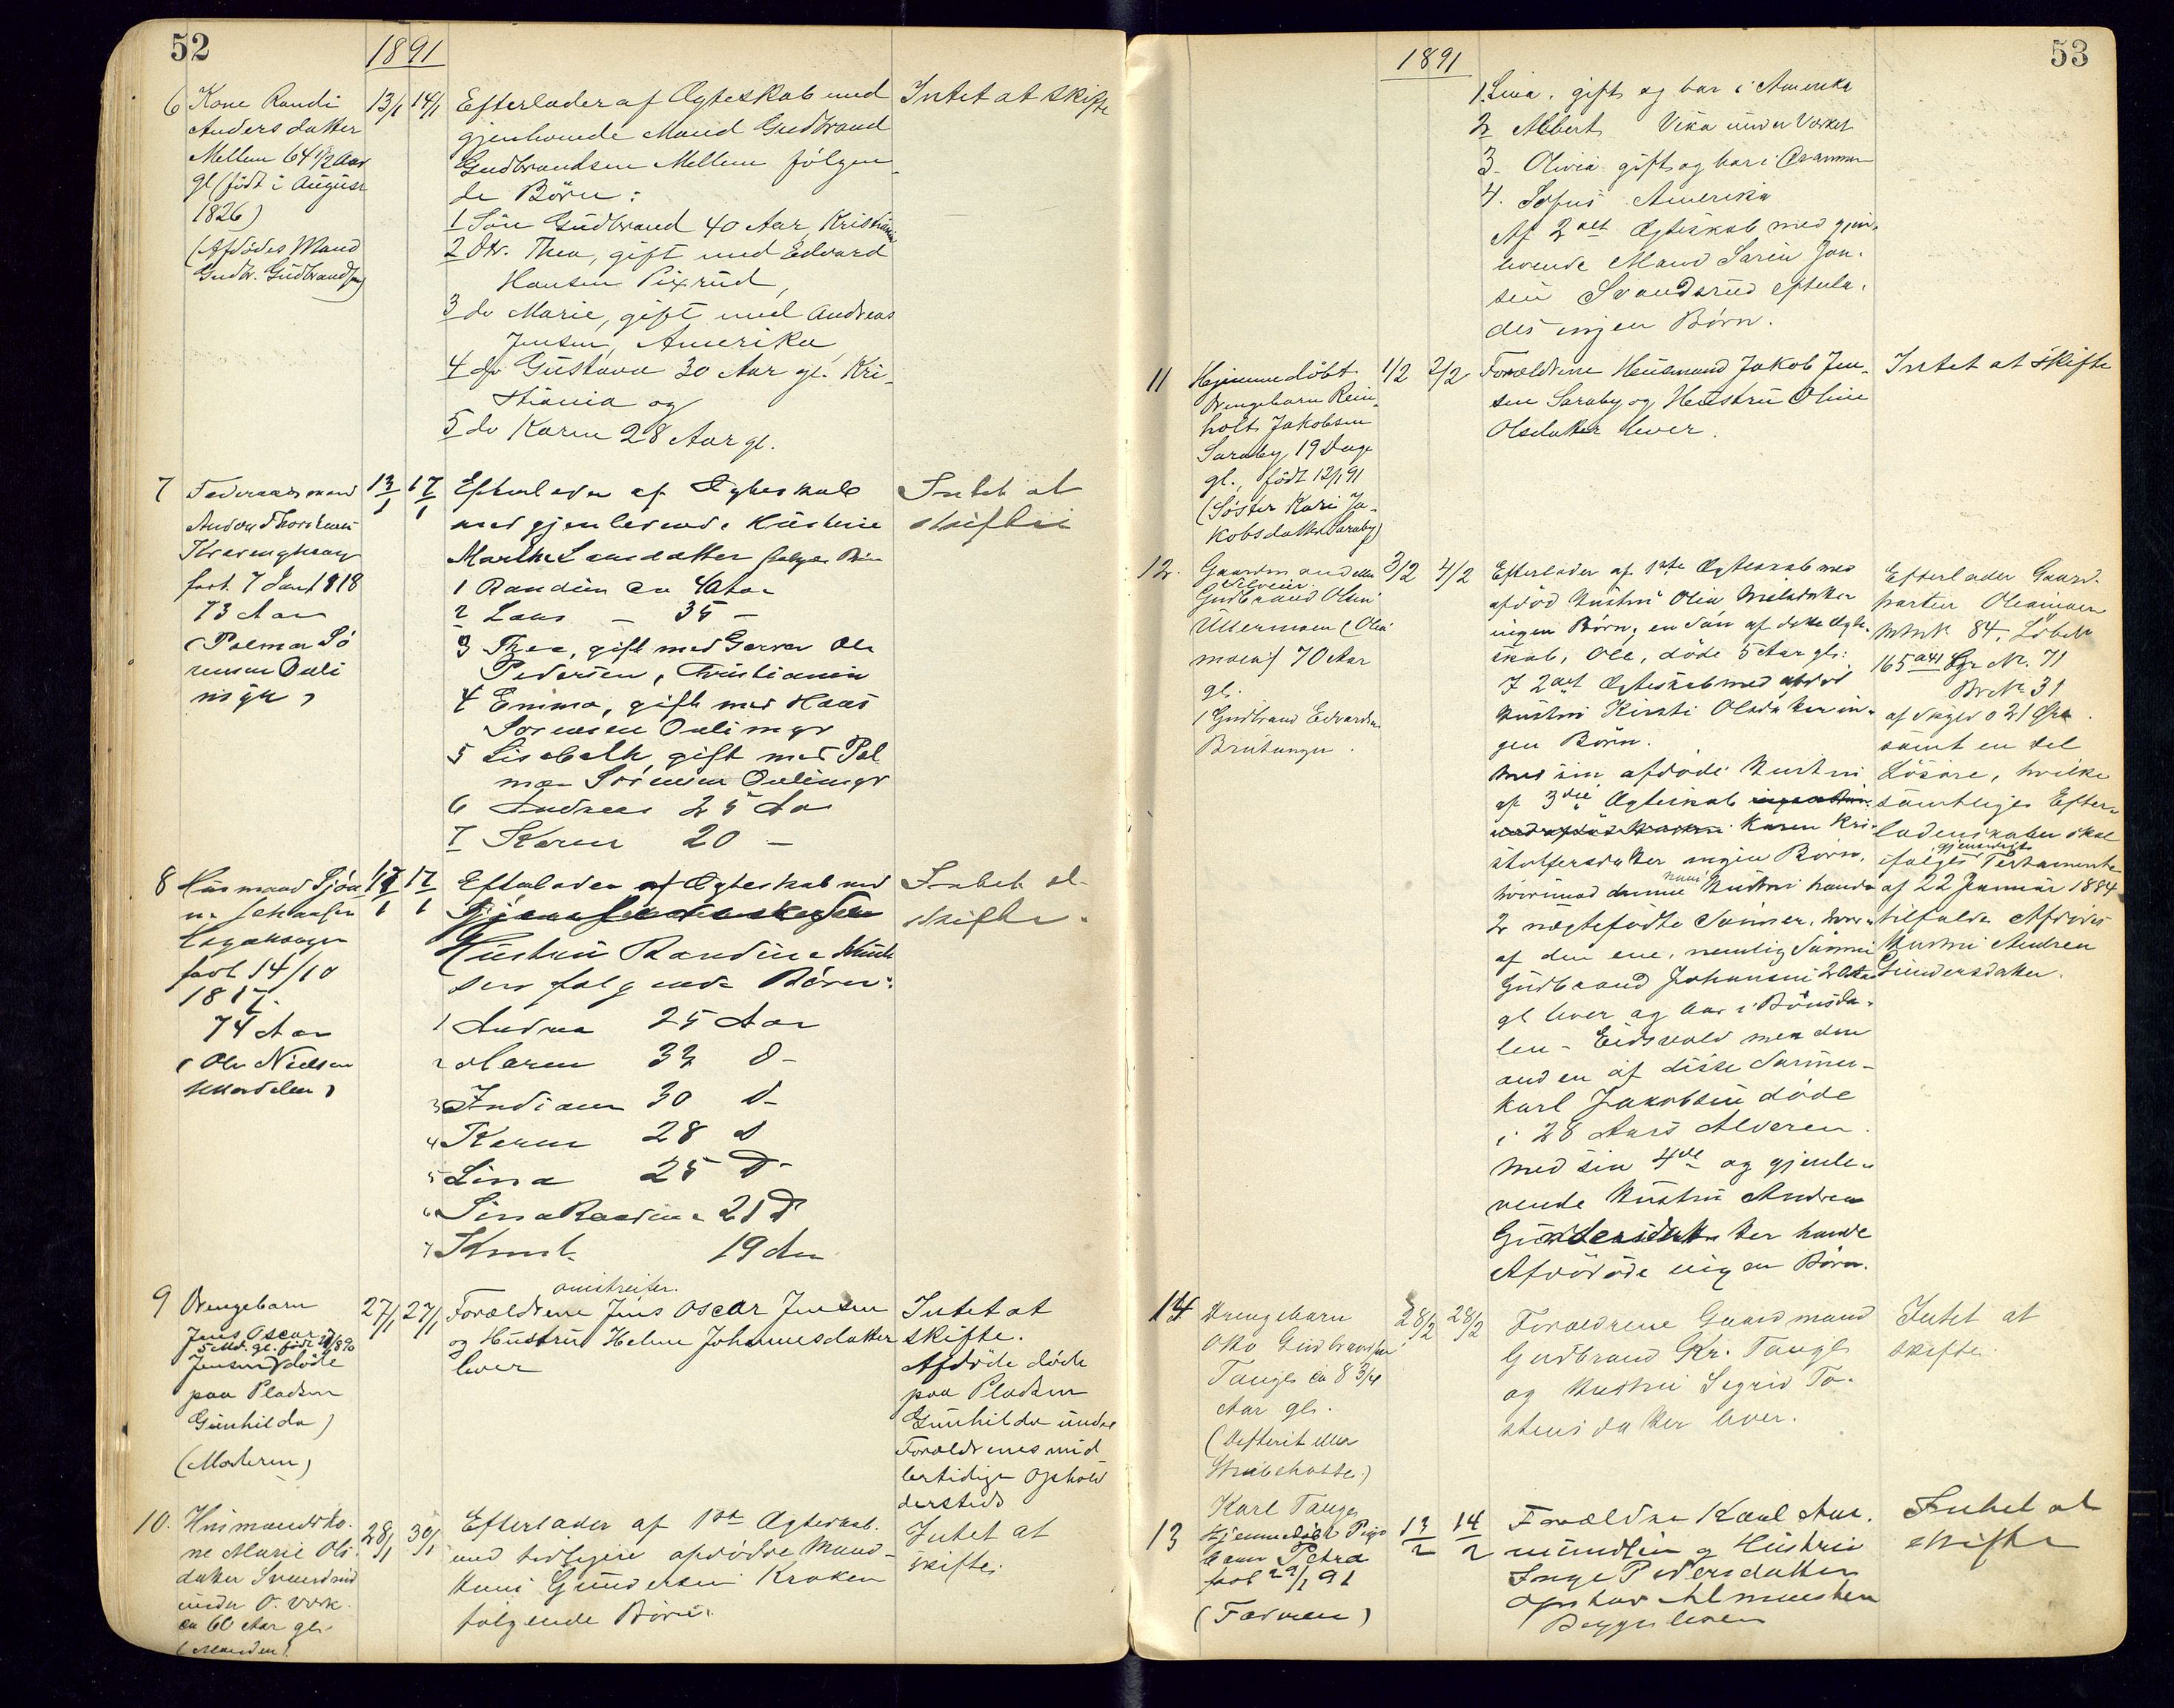 52
1891
6 Kone Randi
Anders datter
Mellem 64 1/2 Aar
gl (født i August
1826)
(Afdødes Mand
Gudb. Gudbrandsen)
13/1 14/1
Efterlader af Ægteskab med
gjenlevende Mand Gudbrand
Gudbrandsen Mellem følgen-
de Börn:
1 Sön Gudbrand 40 Aar, Kristiania
2 Dtr. Thea, gift med Edvard
Hansen Pixrud,
3 do Marie, gift med Andreas
Jensen, Amerika,
4 do Gustava 30 Aar gl. Kri-
stiania og
5 do Karen 28 Aar gl.
Intet at skifte
7 Føderaadsmand
født 7 Janr 1818
73 Aar
(Palmar Sö
rensen
13/1 17/1
Efterlader af Ægteskab
med gjenlevende Hustrue
Marthe Larsdatter følgende Børn
1 Randine ca 40 Aar
2 Lars — 35 —
3 Thea, gift med Garver Ole
Pedersen, Christiania
4 Emma, gift med Hans
Sørensen
5 Lisabeth, gift med Pal
mar Sörensen
6 Andreas 25 Aar
7 Karen 20 —
Intet at
skifte
8 Husmand
født 14/10
1817
74 Aar
(Ole Nielsen
17/1 17/1
Efterlader af Ægteskab med
Hustru Randine Knud
sen følgende Börn:
1 Andrea 25 Aar
2 Maren 32 d-
3 Indiane 30 d-
4 Karen 28 d
5 Lina 25 d-
6 Lina Randine 21 d
7 Knut 19 Aar
Intet at
skifte.
9 Drengebarn
Jens Oscar
5 Md. gl. født /8 90
Jensen (døde
paa Pladsen
Gunhilda)
(Moderen)
27/1 27/1
omstreifer.
Forældrene Jens Oscar Jensen
og Hustru Helene Johannesdatter
lever
Intet at
skifte.
Afdöde döde
paa Pladsen
Gunhilda under
Forældrenes mid
lertidige Ophold
dersteds
10. Husmandsko-
ne Marie Ols-
datter Svendsrud
under O. Værk.
ca 60 Aar gl.
(Manden).
28/1 30/1
Efterlader af 1ste Ægteskab
med tidligere afdødde Mand
Hans Gundersen Kroken
følgende Börn:
Intet at
skifte.
53
1891
1. Lina, gift og bor i Amerika
2 Albert Vika under Værket
3 Olivia gift og bor i
4. Sofus Amerika
Af 2det Ægteskab med gjen-
levende Mand Søren Jon-
sen Svendsrud efterla-
des ingen Børn.
11 Hjemmedöbt
Drengebarn Rein-
holt Jakobsen
Saraby 19 Dage
gl., född 12/1 91
(Søster Kari Ja-
kobsdatter Saraby)
1/2 2/2
Forældrene Husmand Jakob Jen-
sen Saraby og Hustru Oline
Olsdatter lever.
Intet at skifte
12. Gaardmand eller
Gudbrand Olsen
Ullermoen (Olea
moen) 70 Aar
gl.
(Gudbrand Edvardsen
3/2 4/2
Efterlader af 1ste Ægteskab med
afdöd Hustru Olia Nielsdatter
ingen Børn, en Sön af dette Ægte-
skab, Ole, döde 5 Aar gl:
I 2det Ægteskab med afdöd
Hustru Kirsti Olsdatter in-
gen Börn.
Med sin afdöde Hustru
af 3die Ægteskab
Karen Kri-
stoffersdatter ingen Börn,
hvorimod hans Hustru havde
2 uægtefødte Sönner, hvor-
af den ene, nemlig Sönnen
Gudbrand Johansen
gl lever og bor i Bönsda-
len - Eidsvold men den
anden af disse Sönner -
Karl Jakobsen döde
i 28 Aars Alderen.
Med sin 4de og gjenle-
vende Hustru Andrea
Gundersdatter havde
Afdöde ingen Börn.
Efterlader Gaard-
parten Oleamoen
Mtr N 84, Löbe N
165 Gr Nr. 71
Br Nr 31
af Skyld 0 21 Øre
samt en del
Lösöre, hvilke
samtlige Efter-
ladenskaber skal
ifølge gjensidigt Testamente
af 22 Januar 1884
tilfalde Afdödes
Hustru Andrea
Gundersdatter.
14 Drengebarn
Otto Gudbrandsen
Tange ca 8 3/4
Aar gl.
(Difterit eller
Strubehoste.)
Karl Tange
28/2 28/2
Forældrene Gaardmand
Gudbrand Kr. Tange
og Hustru Sigrid To-
stensdatter lever.
Intet at
skifte.
13 Hjemmedöbt Pige
barn Petra
født 29/1 91
(Faderen)
13/2 14/2
Forældre Karl Aa-
mundsen og Hustru
Inge Pedersdatter
Begge lever
Intet at
skifte